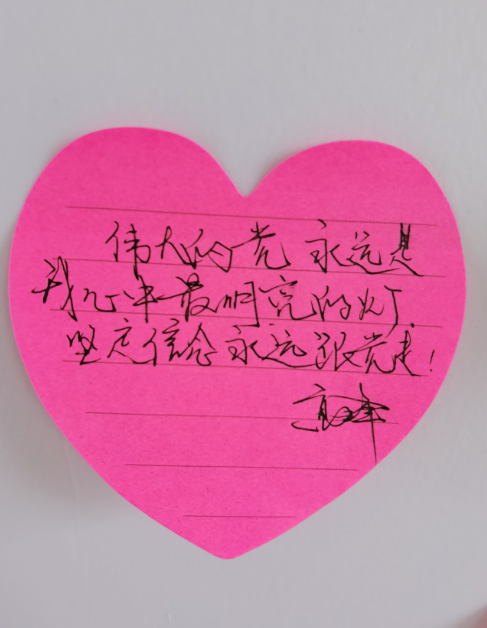 伟大的党 永远是
我心中最明亮的灯.
坚定信念 永远跟党走!